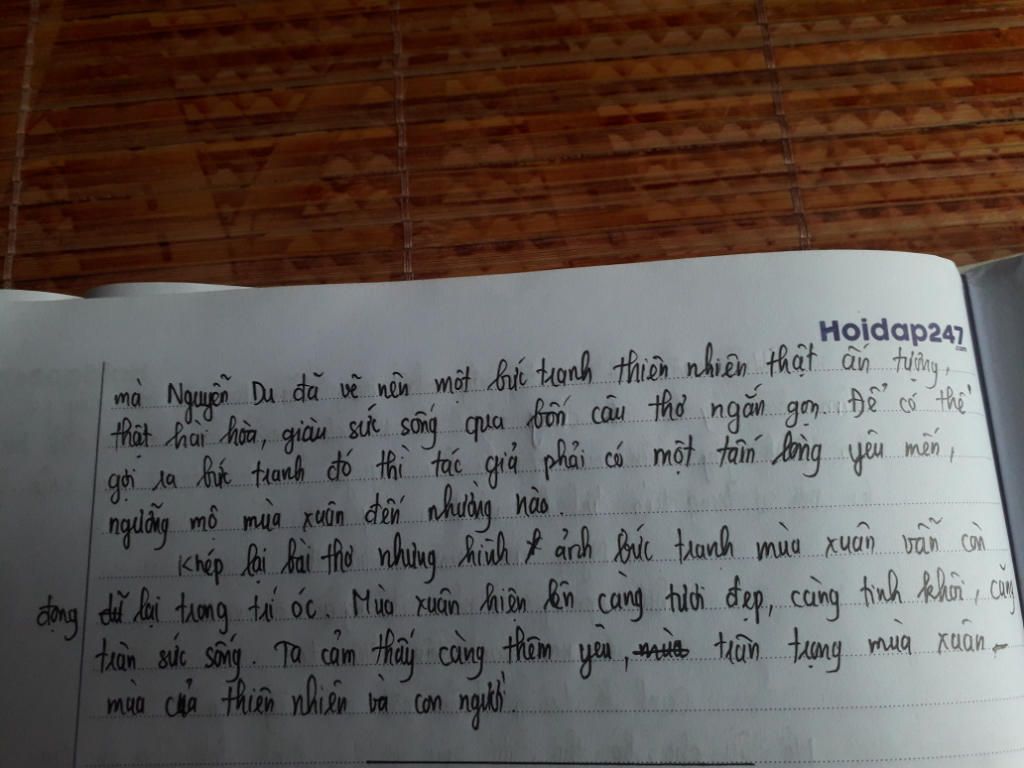 Hoidap247
.com
mà Nguyễn Du đã vẽ nên một bức tranh thiên nhiên thật ấn tượng,
thật hài hòa, giàu sức sống qua bốn câu thơ ngắn gọn. Để có thể
gợi ra bức tranh đó thì tác giả phải có một tấm lòng yêu mến,
ngưỡng mộ mùa xuân đến nhường nào.
Khép lại bài thơ nhưng hình ảnh bức tranh mùa xuân vẫn còn
đọng lại trong trí óc. Mùa xuân hiện lên càng tươi đẹp, càng tinh khôi, càng
tràn sức sống. Ta cảm thấy càng thêm yêu, trân trọng mùa xuân -
mùa của thiên nhiên và con người.